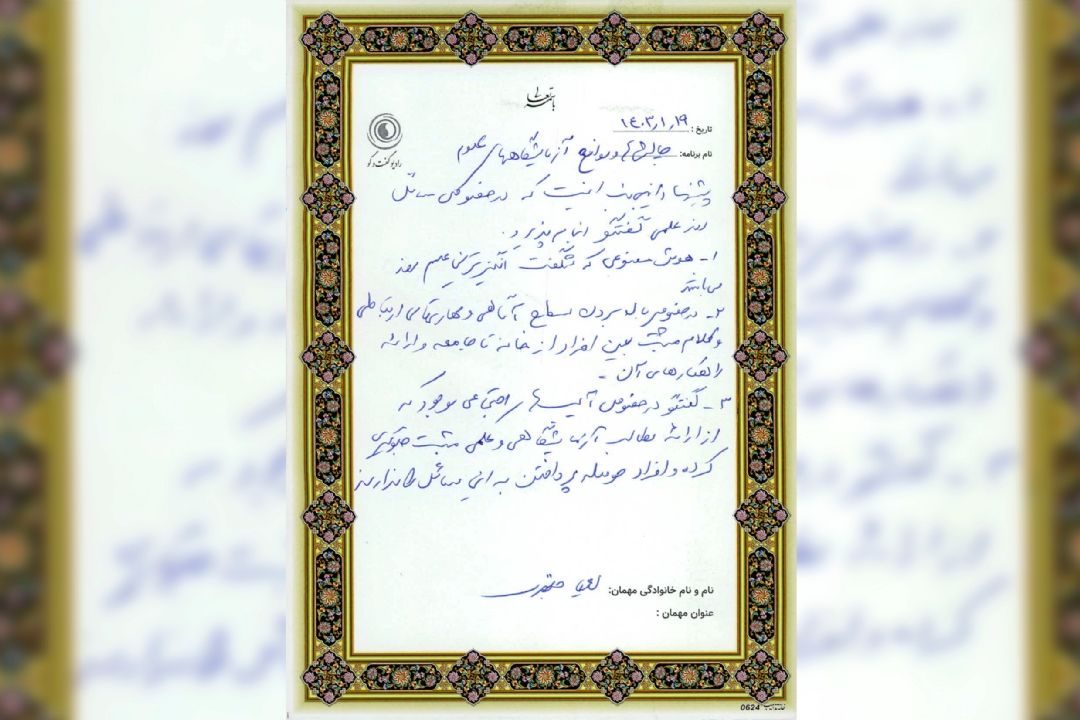 باسمه تعالی
رادیو گفت و گو
تاریخ: ۱۴۰۳/۱/۱۹
نام برنامه: چالش ها و موانع آزمایشگاههای علوم
پیشنهاد اینجانب اینست که در خصوص مسائل
روز علمی گفتگو انجام پذیرد.
۱- هوش مصنوعی که شگفت انگیزترین علم روز
می باشد
۲- در خصوص بالا بردن سطح آگاهی و مهارتهای ارتباطی
و کلام مثبت بین افراد از خانه تا جامعه و ارائه
راهکارهای آن -
۳- گفتگو در خصوص آسیبهای اجتماعی موجود که
از ارائه مطالب آزمایشگاهی و علمی مثبت جلوگیری
کرده و افراد حوصله پرداختن به این مسائل را ندارند
نام و نام خانوادگی مهمان:
عنوان مهمان :
0624